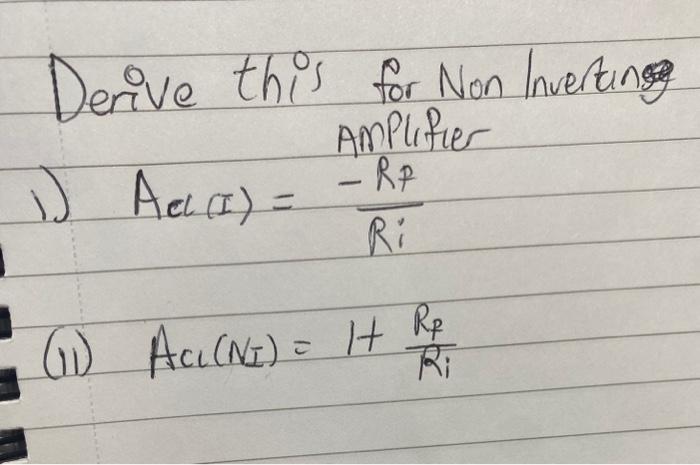 Derive this for Non Inverting
AMPlifier
i) Acl(I) = -Rf/Ri
(ii) Acl(NI) = 1+ Rf/Ri